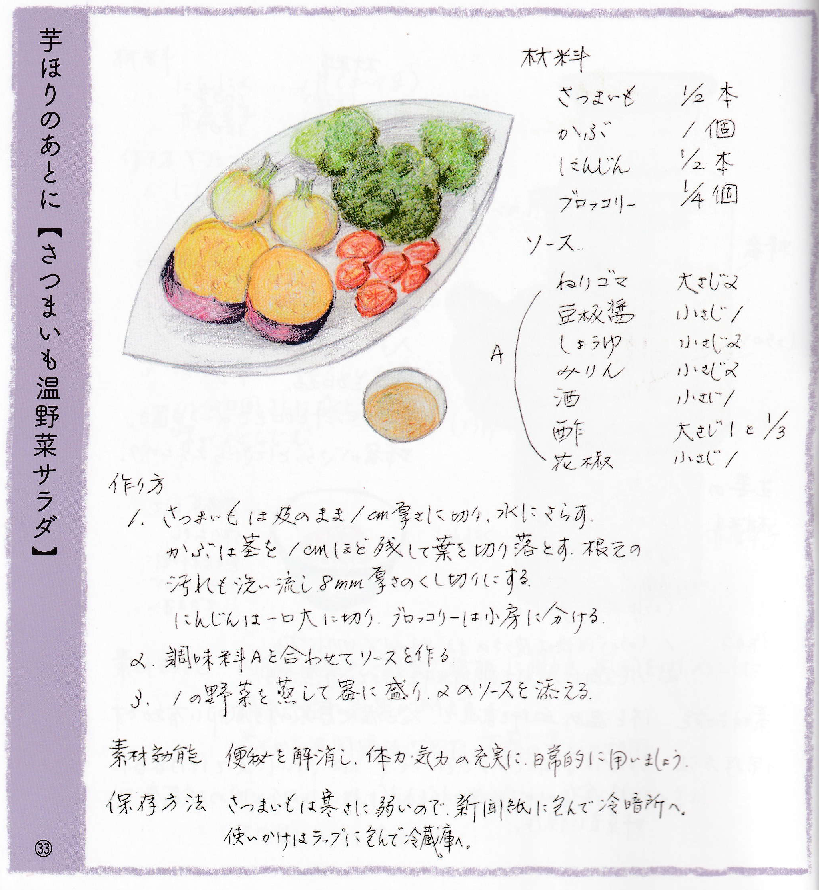 芋ほりのあとに【さつまいも温野菜サラダ】
材料
さつまいも 1/2本
かぶ 1個
にんじん 1/2本
ブロッコリー 1/4個
ソース
A
ねりゴマ 大さじ2
豆板醤 小さじ1
しょうゆ 小さじ2
みりん 小さじ2
酒 小さじ1
酢 大さじ1と1/3
花椒 小さじ1
作り方
1. さつまいもは皮のまま1cm厚さに切り、水にさらす。
かぶは茎を1cmほど残して葉を切り落とす。根元の
汚れも洗い流し8mm厚さのくし切りにする。
にんじんは一口大に切り、ブロッコリーは小房に分ける。
2. 調味料Aを合わせてソースを作る
3. 1の野菜を蒸して器に盛り、2のソースを添える。
素材効能 便秘を解消し、体力気力の充実に、日常的に用いましょう。
保存方法 さつまいもは寒さに弱いので、新聞紙に包んで冷暗所へ。
使いかけはラップに包んで冷蔵庫へ。
33